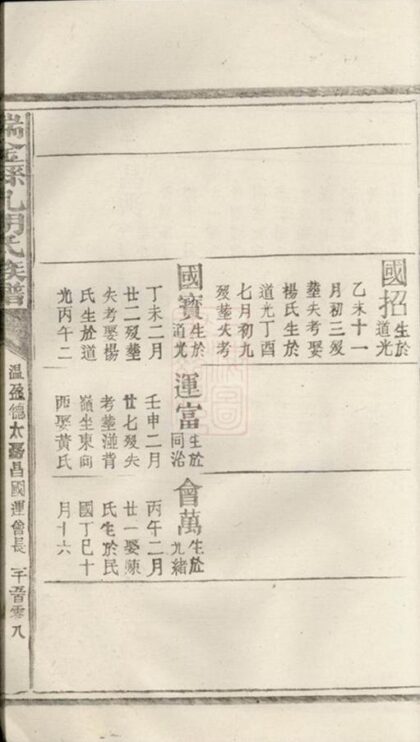 國招生於道光
乙未十一
月初三歿
塟失考娶
楊氏生於
道光丁酉
七月初九
歿塟失考
國寶生於道光
丁未二月
廿二歿塟
失考娶楊
氏生於道
光丙午二
運富生於同治
壬申二月
廿七歿失
考塟湴背
嶺坐東向
西娶黃氏
會萬生於光緒
丙午二月
廿一娶陳
氏生於民
國丁巳十
月十六
瑞金孫孔明氏族譜
溫盈德太嘉昌國運會長